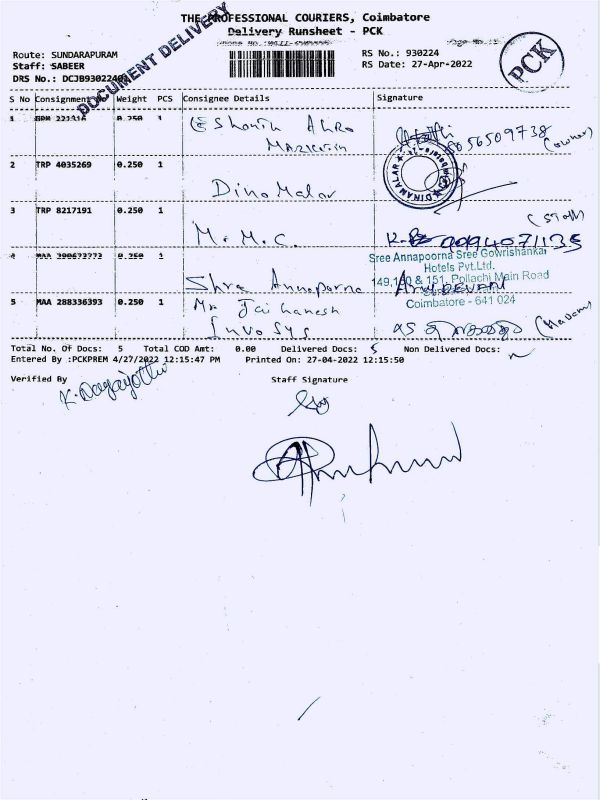 THE PROFESSIONAL COURIERS, Coimbatore
Delivery Runsheet - PCK
DOCUMENT DELIVERY
PCK
Route: SUNDARAPURAM
RS No.: 930224
Staff: SABEER
RS Date: 27-Apr-2022
DRS No.: DCJB9302240
S No Consignment No Weight PCS Consignee Details Signature
1 0.250 1
(owner)
2 TRP 4035269 0.250 1
DINAMALAR
Dinamalar
3 TRP 8217191 0.250 1
M. M. C.
(Staff)
4 MAA 390672772 0.250 1
Sree Annapoorna Sree Gowrishankar
Hotels Pvt.Ltd.
149,150 & 151, Pollachi Main Road
Coimbatore - 641 024
Shree Annaporna
5 MAA 288336393 0.250 1
Mr Jai Ganesh
Invosys
(Madam)
Total No. Of Docs: 5 Total COD Amt: 0.00 Delivered Docs: 5 Non Delivered Docs:
Entered By :PCKPREM 4/27/2022 12:15:47 PM Printed On: 27-04-2022 12:15:50
Verified By
Staff Signature